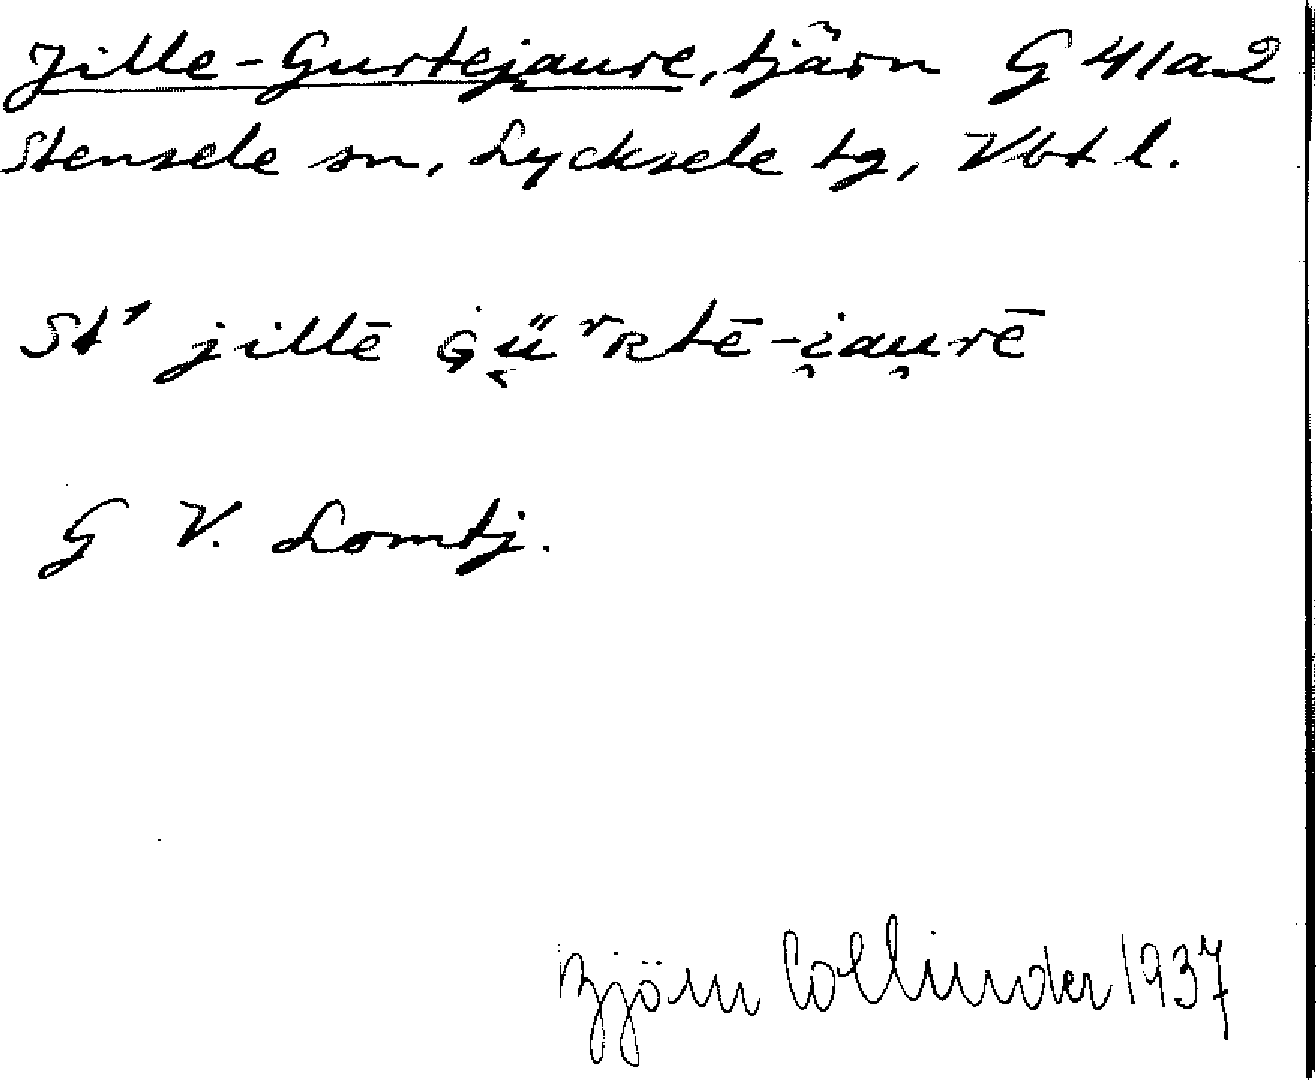 Jille-Gurtejaure, tjärn G 41a2
Stensele sn, Lycksele tg, Vbt l.
St' jillē ɢ̇ü̬ʳʀtē-i̯au̯rē
G V. Lomtj.
Björn Collinder 1937